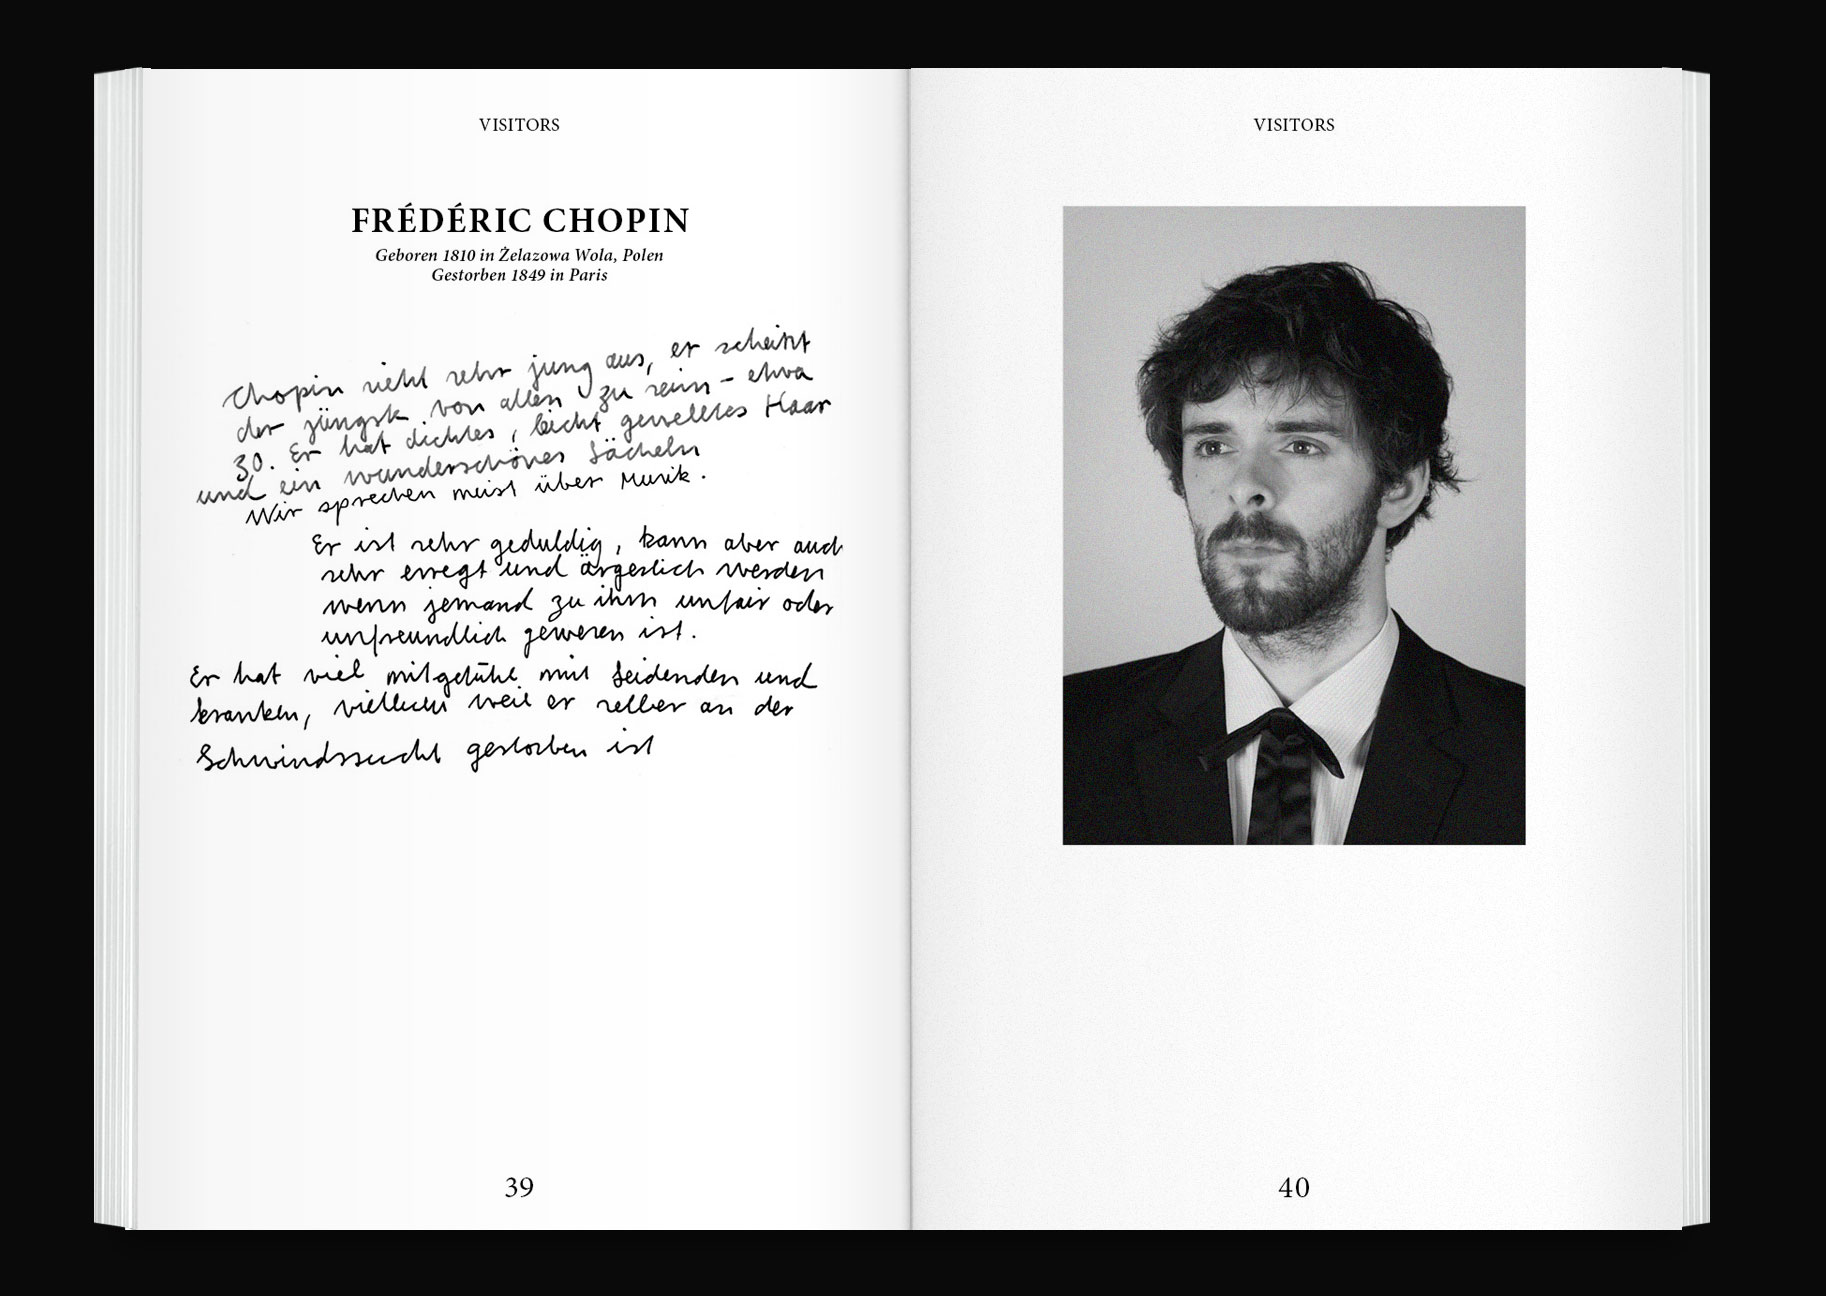 VISITORS
FRÉDÉRIC CHOPIN
Geboren 1810 in Żelazowa Wola, Polen
Gestorben 1849 in Paris
Chopin sieht sehr jung aus, er scheint
der jüngste von allen zu sein - etwa
30. Er hat dichtes, leicht gewelltes Haar
und ein wunderschönes Lächeln
Wir sprechen meist über Musik.
Er ist sehr geduldig, kann aber auch
sehr erregt und ärgerlich werden
wenn jemand zu ihm unfair oder
unfreundlich gewesen ist.
Er hat viel mitgefühl mit Leidenden und
kranken, vielleicht weil er selber an der
Schwindssucht gestorben ist
39
VISITORS
40